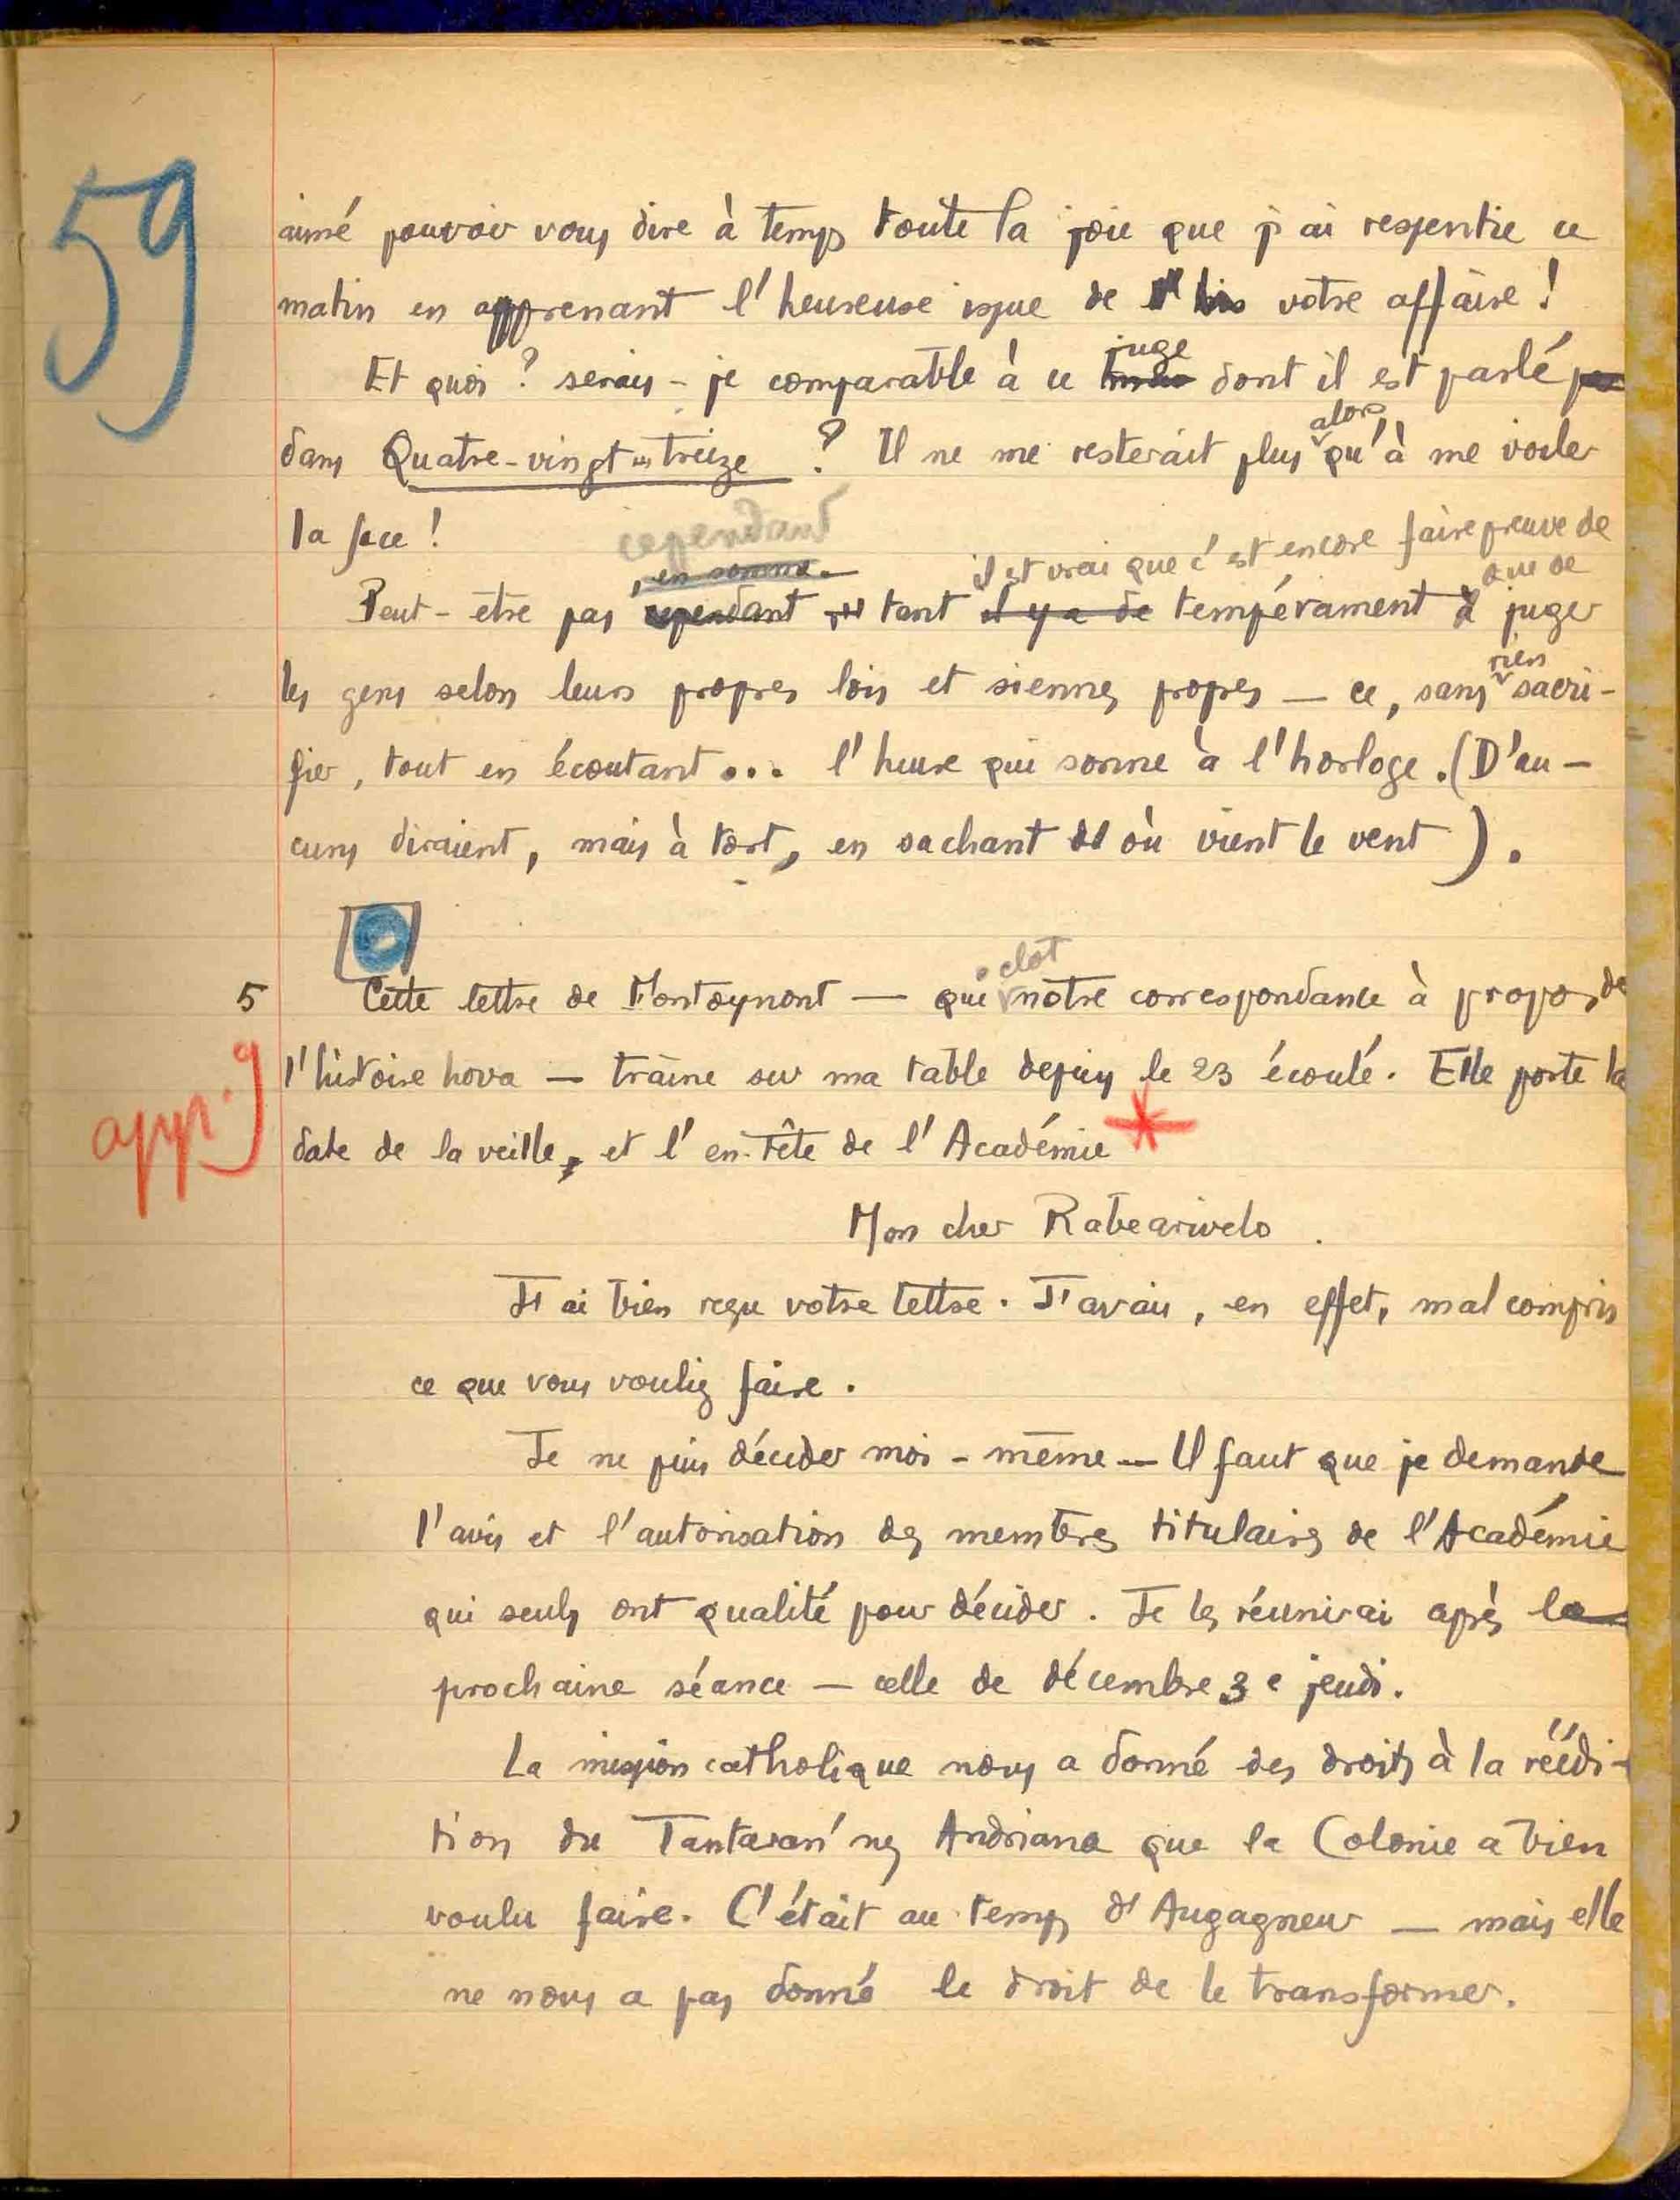 59
aimé pouvoir vous dire à temps toute la joie que j'ai ressentie ce
matin en apprenant l'heureuse issue de votre affaire !
juge
Et quoi ? serais-je comparable à ce dont il est parlé
alors
dans Quatre-vingt-treize ? Il ne me resterait plus qu'à me voiler
la face !
cependant
il est vrai que c'est encore faire preuve de
, en somme.
que de
Peut-être pas cependant tant il y a de tempérament à juger
rien
les gens selon leurs propres lois et siennes propres — ce, sans sacri-
fier, tout en écoutant... l'heure qui sonne à l'horloge. (D'au-
cuns diraient, mais à tort, en sachant d'où vient le vent).
clot
5 Cette lettre de Montagnont — qui notre correspondance à propos de
l'histoire hova — traîne sur ma table depuis le 23 écoulé. Elle porte la
app. 9
date de la veille, et l'en-tête de l'Académie *
Mon cher Rabearivelo.
J'ai bien reçu votre lettre. J'avais, en effet, mal compris
ce que vous vouliez faire.
Je ne puis décider moi-même — Il faut que je demande
l'avis et l'autorisation des membres titulaires de l'Académie
qui seuls ont qualité pour décider. Je les réunirai après la
prochaine séance — celle de décembre 3e jeudi.
La mission catholique nous a donné des droits à la réédi-
tion du Tantaran'ny Andriana que la Colonie a bien
voulu faire. C'était au temps d'Augagneur — mais elle
ne nous a pas donné le droit de le transformer.